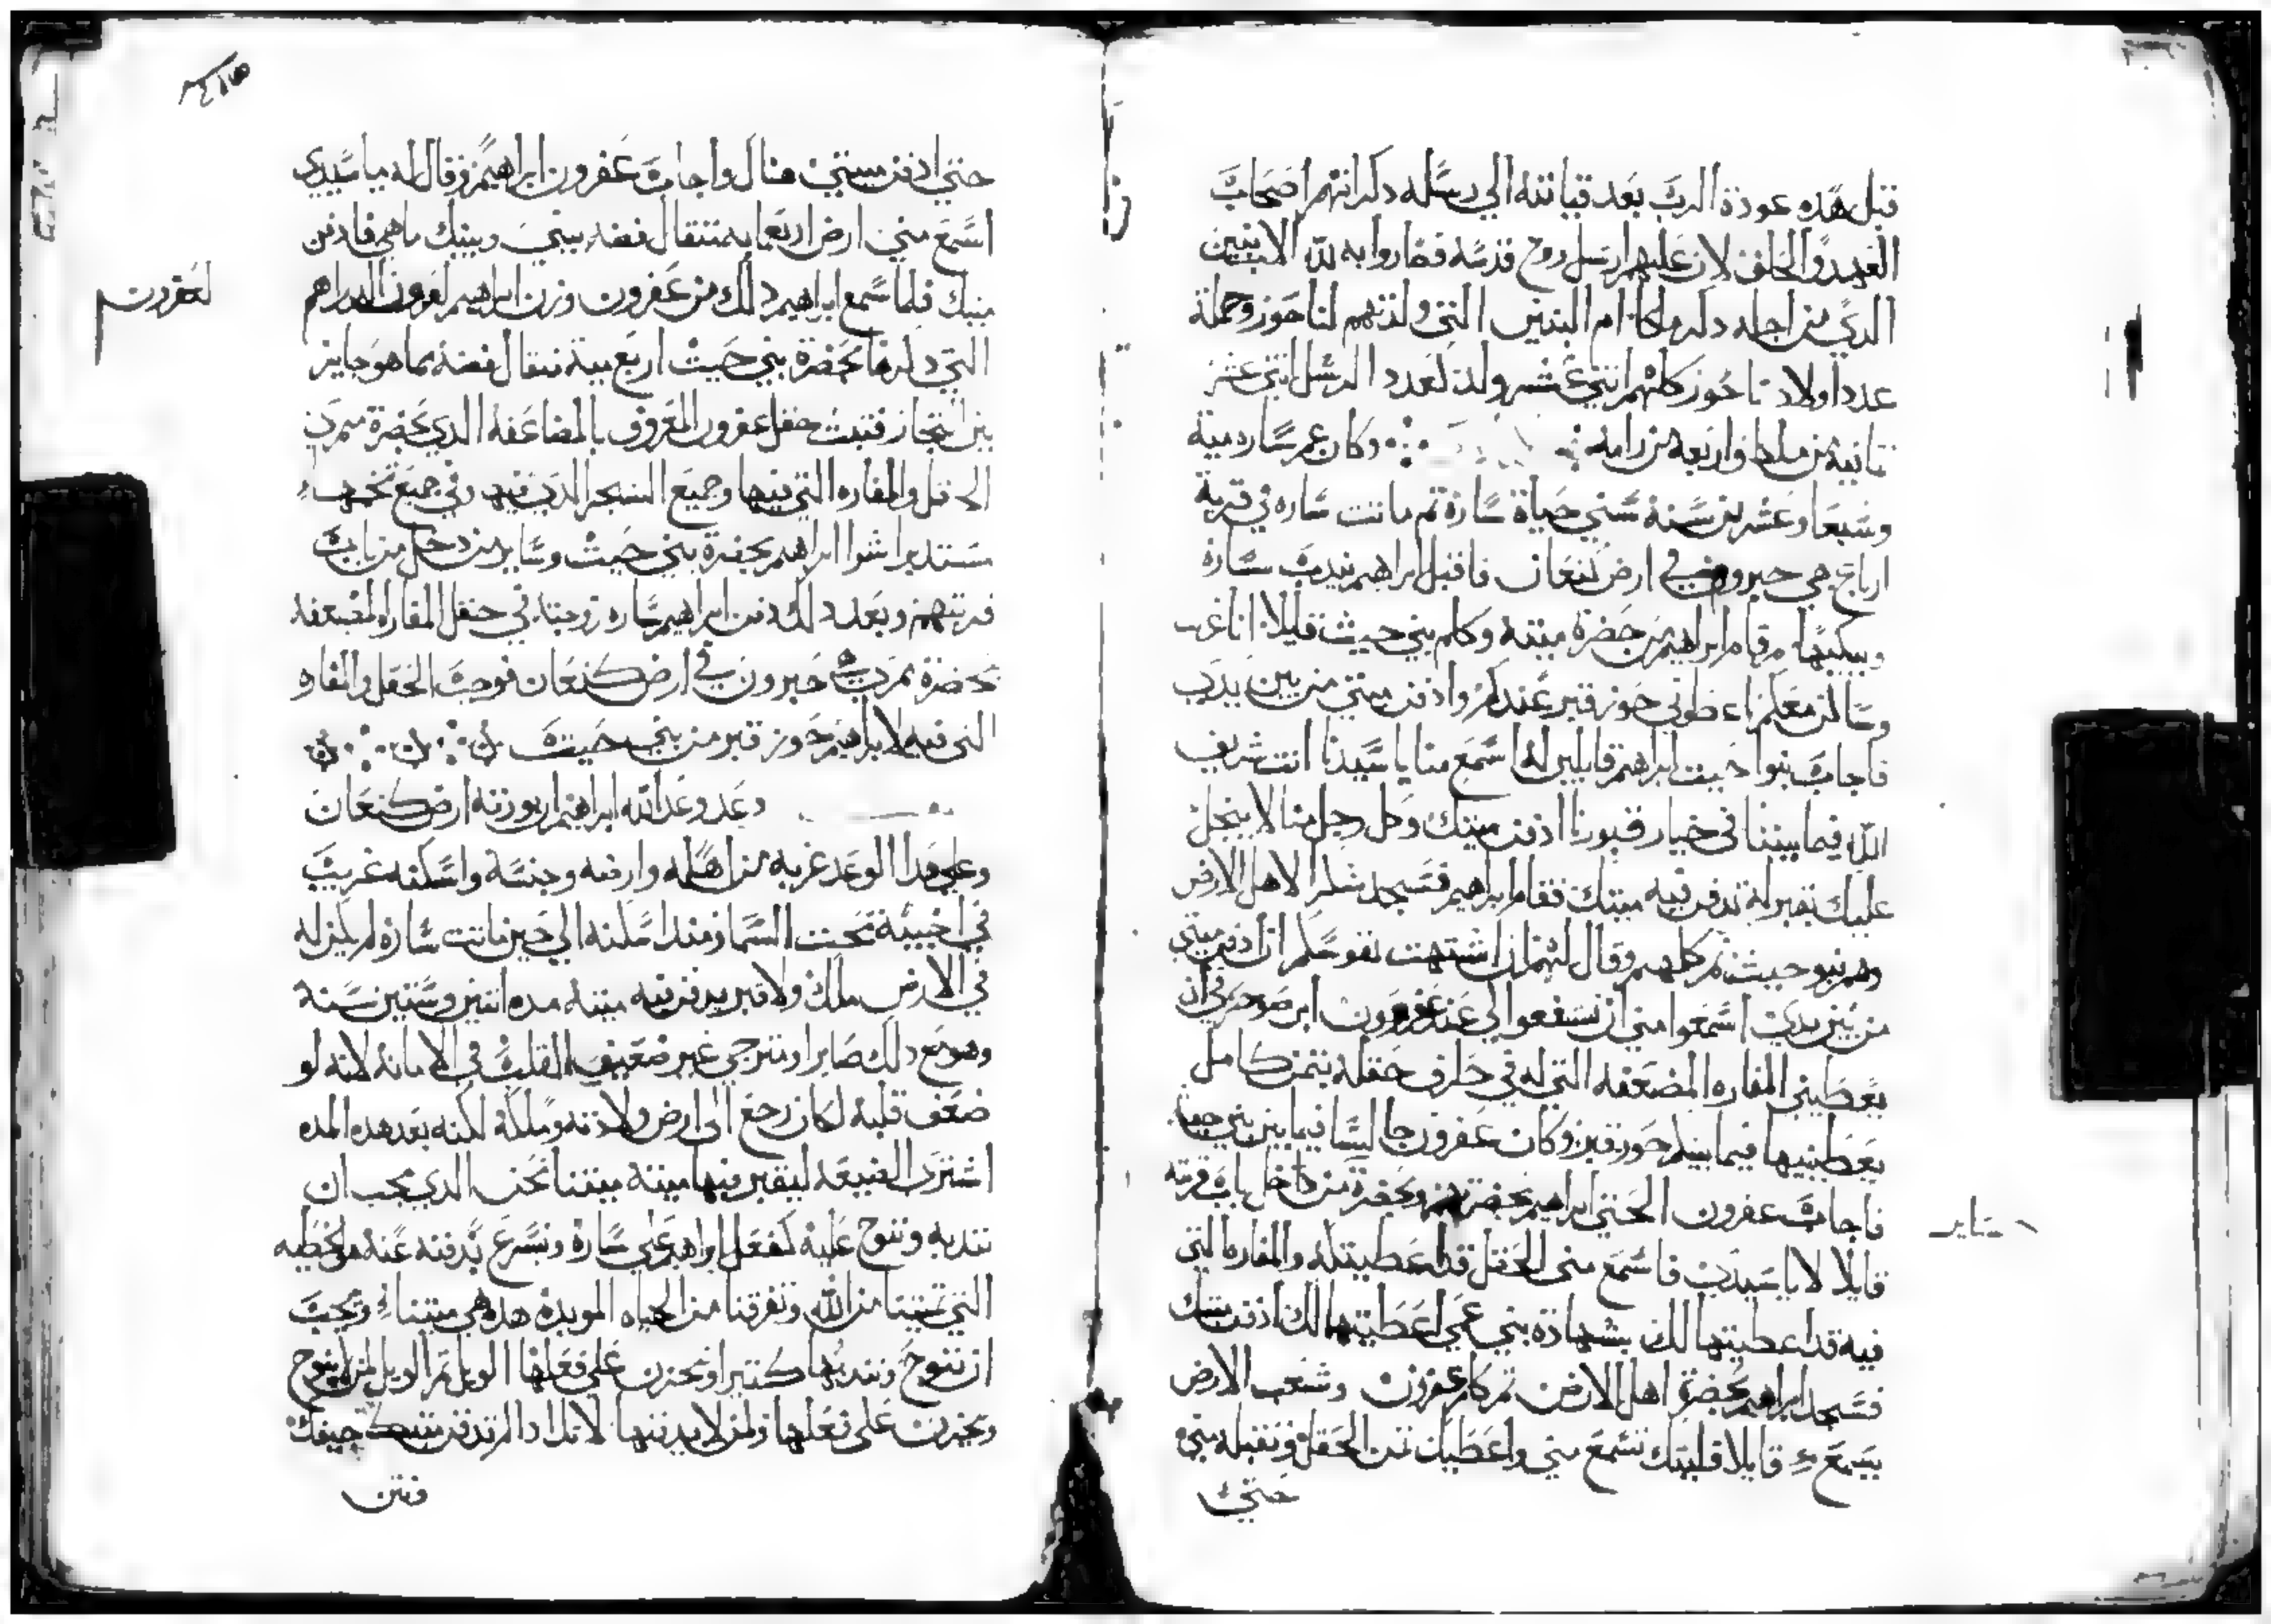 قبل هده عودة الرب بعد قيامته الي رسله دكر انهم اصحاب
العهد والحلف لان عليهم ارسل روح قدسه فصاروا به لله الابنين
الدي من اجله دكر ملكا ام البنين التي ولدتهم لناحوز وجملة
عدد اولاد ناحوز كلهم اتني عشر ولد لعدد الرسل اتني عشر
تمانية من ملكا واربعه من رامه وكان عمر ساره مية
وسبعا وعشرين سنة سني حياة سارة تم ماتت ساره في قرية
ارباع هي حبرون في ارض كنعان فاقبل ابراهيم يندب سارة
ويبكيها وقام ابراهيم من حضرة ميته وكلم بني حيث قايلا انا غريب
وساكن معكم اعطوني حوز قبر عندكم وادفن ميتي من بين يدي
فاجاب بنوا حيت ابراهيم قايلين له اسمع منا يا سيدنا انت شريف
الله فيما بيننا في خيار قبورنا ادفن ميتك وكل رجل منا لا يبخل
عليك بقبر له تدفن فيه ميتك فقام ابراهيم فسجد شكرا لاهل الارض
وهم بنو حيث تم كلمهم وقال لهم ان اشتهت نفوسكم ان ادفن ميتي
من بين يدي اسمعوا مني ان تشفعوا لي عند عفرون ابن صوحر في ان
يعطيني المغاره المضعفه التي له في طرف حقله بتمن كامل
يعطينيها فيما بينكم حوز قبر وكان عفرون جالسا فيما بين بني حيت
فاجاب عفرون الحتي ابراهيم بحضرتهم وبحضرة من داخل باب قرية
ساير
قايلا لا يا سيدي فاسمع مني الحقل قد اعطيتكه والمغاره التي
فيه قد اعطيتها لك بشهادة بني عمي اعطيتها لك ادفن ميتك
فسجد ابراهيم بحضرة اهل الارض تم كلم عفرون وشعب الارض
يسمع قايلا قلبتك تسمع مني واعطيك تمن الحقل وتقبله مني
حتي
حتي ادفن ميتي هناك واجاب عفرون ابراهيم وقال له يا سيدي
اسمع مني ارض اربعمايه متقال فضه بيني وبينك ما هي فادفن
ميتك فلما سمع ابراهيم دلك من عفرون وزن ابراهيم لعفرون الدراهم
لعفرون
التي دكرها بحضرة بني حيث اربع مية متقال فضة مما هو جايز
بين التجار فتبت حقل عفرون المعروف بالمضاعفة الدي بحضرة ممري
الحقل والمغاره التي فيها وجميع الشجر الدي فيه وفي جميع تخمها
مستديرا شرا ابراهيم بحضرة بني حيث وساير من دخل من باب
قريتهم وبعد دلك دفن ابراهيم ساره زوجته في حقل المغاره المضعفه
بحضرة ممري حبرون في ارض كنعان فوجب الحقل والمغاره
التي فيه لابراهيم حوز قبر من بني حيت
وعد وعد الله ابراهيم ان يورته ارض كنعان
وعلي هدا الوعد غربه من اهله وارضه وجنسة واسكنه غريب
في اخبيئة تحت السما ومند اسكنه الي حين ماتت سارة لم يكن له
في الارض ملك ولا قبر يدفن فيه ميته مده اتنين وستين سنة
وهو مع دلك صابرا ومترجي غير ضعيف القلب في الامانة لانه لو
ضعف قلبه لكان رجع الي ارض ولادته وملكه لكنه بعد هده المده
اشتري الضيعه ليقبر فيها ميته ميتنا نحن الدي يجب ان
نندبه وننوح عليه كفعل ابراهيم علي سارة ونسرع بدفنه عنه هو الخطيه
التي تميتنا من الله وتفرقنا من الحياه الموبدة هده هي ميتنا ويجب
ان ننوح ونندبها كتيرا ونحزن علي فعلها الويل تم الويل لمن لا ينوح
ويحزن علي فعلها ولمن لا يدفنها لانك ادا لم تدفن ميتك جيفك
ونتن